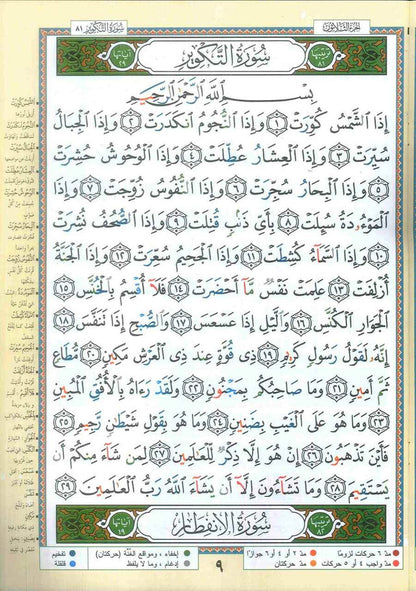 الجزء الثلاثون
سورة التكوير ٨١
ترتيبها ٨١ سُورَةُ التَّكْوِيرِ آياتها ٢٩
بِسْمِ اللَّهِ الرَّحْمَٰنِ الرَّحِيمِ
إِذَا ٱلشَّمْسُ كُوِّرَتْ ١ وَإِذَا ٱلنُّجُومُ ٱنكَدَرَتْ ٢ وَإِذَا ٱلْجِبَالُ
سُيِّرَتْ ٣ وَإِذَا ٱلْعِشَارُ عُطِّلَتْ ٤ وَإِذَا ٱلْوُحُوشُ حُشِرَتْ
٥ وَإِذَا ٱلْبِحَارُ سُجِّرَتْ ٦ وَإِذَا ٱلنُّفُوسُ زُوِّجَتْ ٧ وَإِذَا
ٱلْمَوْءُۥدَةُ سُئِلَتْ ٨ بِأَىِّ ذَنۢبٍ قُتِلَتْ ٩ وَإِذَا ٱلصُّحُفُ نُشِرَتْ
١٠ وَإِذَا ٱلسَّمَآءُ كُشِطَتْ ١١ وَإِذَا ٱلْجَحِيمُ سُعِّرَتْ ١٢ وَإِذَا ٱلْجَنَّةُ
أُزْلِفَتْ ١٣ عَلِمَتْ نَفْسٌ مَّآ أَحْضَرَتْ ١٤ فَلَآ أُقْسِمُ بِٱلْخُنَّسِ ١٥
ٱلْجَوَارِ ٱلْكُنَّسِ ١٦ وَٱلَّيْلِ إِذَا عَسْعَسَ ١٧ وَٱلصُّبْحِ إِذَا تَنَفَّسَ ١٨
إِنَّهُۥ لَقَوْلُ رَسُولٍ كَرِيمٍ ١٩ ذِى قُوَّةٍ عِندَ ذِى ٱلْعَرْشِ مَكِينٍ ٢٠ مُّطَاعٍ
ثَمَّ أَمِينٍ ٢١ وَمَا صَاحِبُكُم بِمَجْنُونٍ ٢٢ وَلَقَدْ رَءَاهُ بِٱلْأُفُقِ ٱلْمُبِينِ
٢٣ وَمَا هُوَ عَلَى ٱلْغَيْبِ بِضَنِينٍ ٢٤ وَمَا هُوَ بِقَوْلِ شَيْطَٰنٍ رَّجِيمٍ ٢٥
فَأَيْنَ تَذْهَبُونَ ٢٦ إِنْ هُوَ إِلَّا ذِكْرٌ لِّلْعَٰلَمِينَ ٢٧ لِمَن شَآءَ مِنكُمْ أَن
يَسْتَقِيمَ ٢٨ وَمَا تَشَآءُونَ إِلَّآ أَن يَشَآءَ ٱللَّهُ رَبُّ ٱلْعَٰلَمِينَ ٢٩
ترتيبها ٨٢ سُورَةُ الِانفِطَارِ آياتها ١٩
مدّ ٦ حركات لزومًا مدّ ٢ أو ٤ أو ٦ جوازًا إخفاء، ومواقع الغُنَّة (حركتان) تفخيم
مدّ واجب ٤ أو ٥ حركات مدّ حركتان إدغام، وما لا يلفظ قلقلة
٩